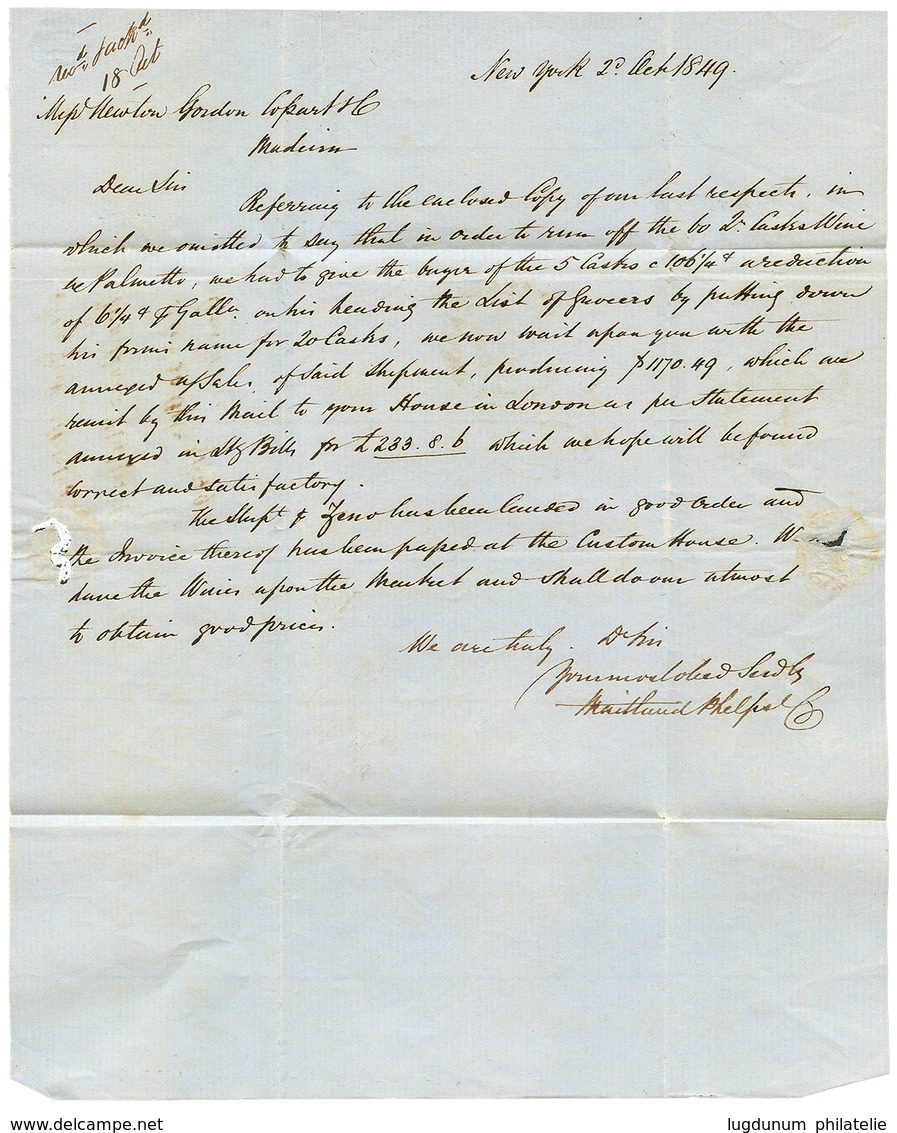 recd Jackn
18 Oct
New York 2d Oct 1849.
Messrs Newton Gordon Cossart & Co
Madeira
Dear Sir
Referring to the enclosed Copy of our last respects, in
which we omitted to say that in order to run off the 60 Qr Casks Wine
pr Palmetto, we had to give the buyer of the 5 Casks @ 106¼ cts a reduction
of 6¼ cts p Gallo. on his heading the List of Grocers by putting down
his firms name for 20 Casks, we now wait upon you with the
annexed a/Sales of said Shipment, producing $1170.49, which we
remit by this Mail to your House in London as per Statement
annexed in Stg Bills for £233.8.6 which we hope will be found
correct and satisfactory.
the Shipt p Zeno has been landed in good order and
the Invoice thereof has been passed at the Custom House. W
have the Wines upon the Market and shall do our utmost
to obtain good prices.
We are truly. Dr Sir
Your most obed Servts
Maitland Phelps & Co
www.delcampe.net
lugdunum philatelie